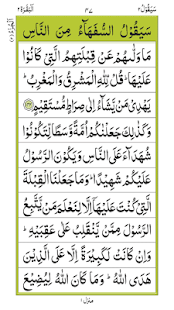 سَيَقُوْلُ ٢ ٣٧ اَلْبَقَرَة ٢
سَيَقُوْلُ السُّفَهَآءُ مِنَ النَّاسِ
مَا وَلّٰىهُمْ عَنْ قِبْلَتِهِمُ الَّتِيْ كَانُوْا
عَلَيْهَا ؕ قُلْ لِّلّٰهِ الْمَشْرِقُ وَالْمَغْرِبُ ؕ
يَهْدِيْ مَنْ يَّشَآءُ اِلٰى صِرَاطٍ مُّسْتَقِيْمٍ
وَكَذٰلِكَ جَعَلْنٰكُمْ اُمَّةً وَّسَطًا لِّتَكُوْنُوْا
شُهَدَآءَ عَلَى النَّاسِ وَيَكُوْنَ الرَّسُوْلُ
عَلَيْكُمْ شَهِيْدًا ؕ وَمَا جَعَلْنَا الْقِبْلَةَ
الَّتِيْ كُنْتَ عَلَيْهَآ اِلَّا لِنَعْلَمَ مَنْ يَّتَّبِعُ
الرَّسُوْلَ مِمَّنْ يَّنْقَلِبُ عَلٰى عَقِبَيْهِ ؕ
وَاِنْ كَانَتْ لَكَبِيْرَةً اِلَّا عَلَى الَّذِيْنَ
هَدَى اللّٰهُ ؕ وَمَا كَانَ اللّٰهُ لِيُضِيْعَ
منزل ١